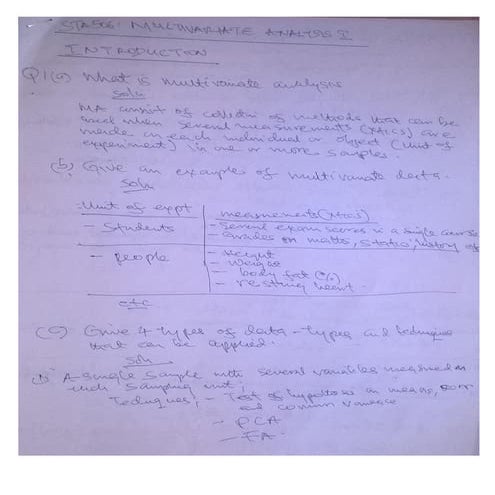 STA 506: MULTIVARIATE ANALYSIS I
INTRODUCTION
Q1(a) What is multivariate analysis
Soln
MA consist of collection of methods that can be
used when several measurements (x̃tics) are
made on each individual or object (unit of
experiment) in one or more samples.
(b) Give an example of multivariate data.
Soln
Unit of expt measurements (x̃tics)
- Students - Several exam scores in a single course
Grades on maths, history
- People - Height
- Weight
- body fat (%)
- resting heart.
etc
(c) Give 4 types of data-types and technique
that can be applied.
Soln
A single sample with several variables measured on
each sampling unit;
Techniques; - Test of hypothesis on means,
and common variance
- PCA
- FA.